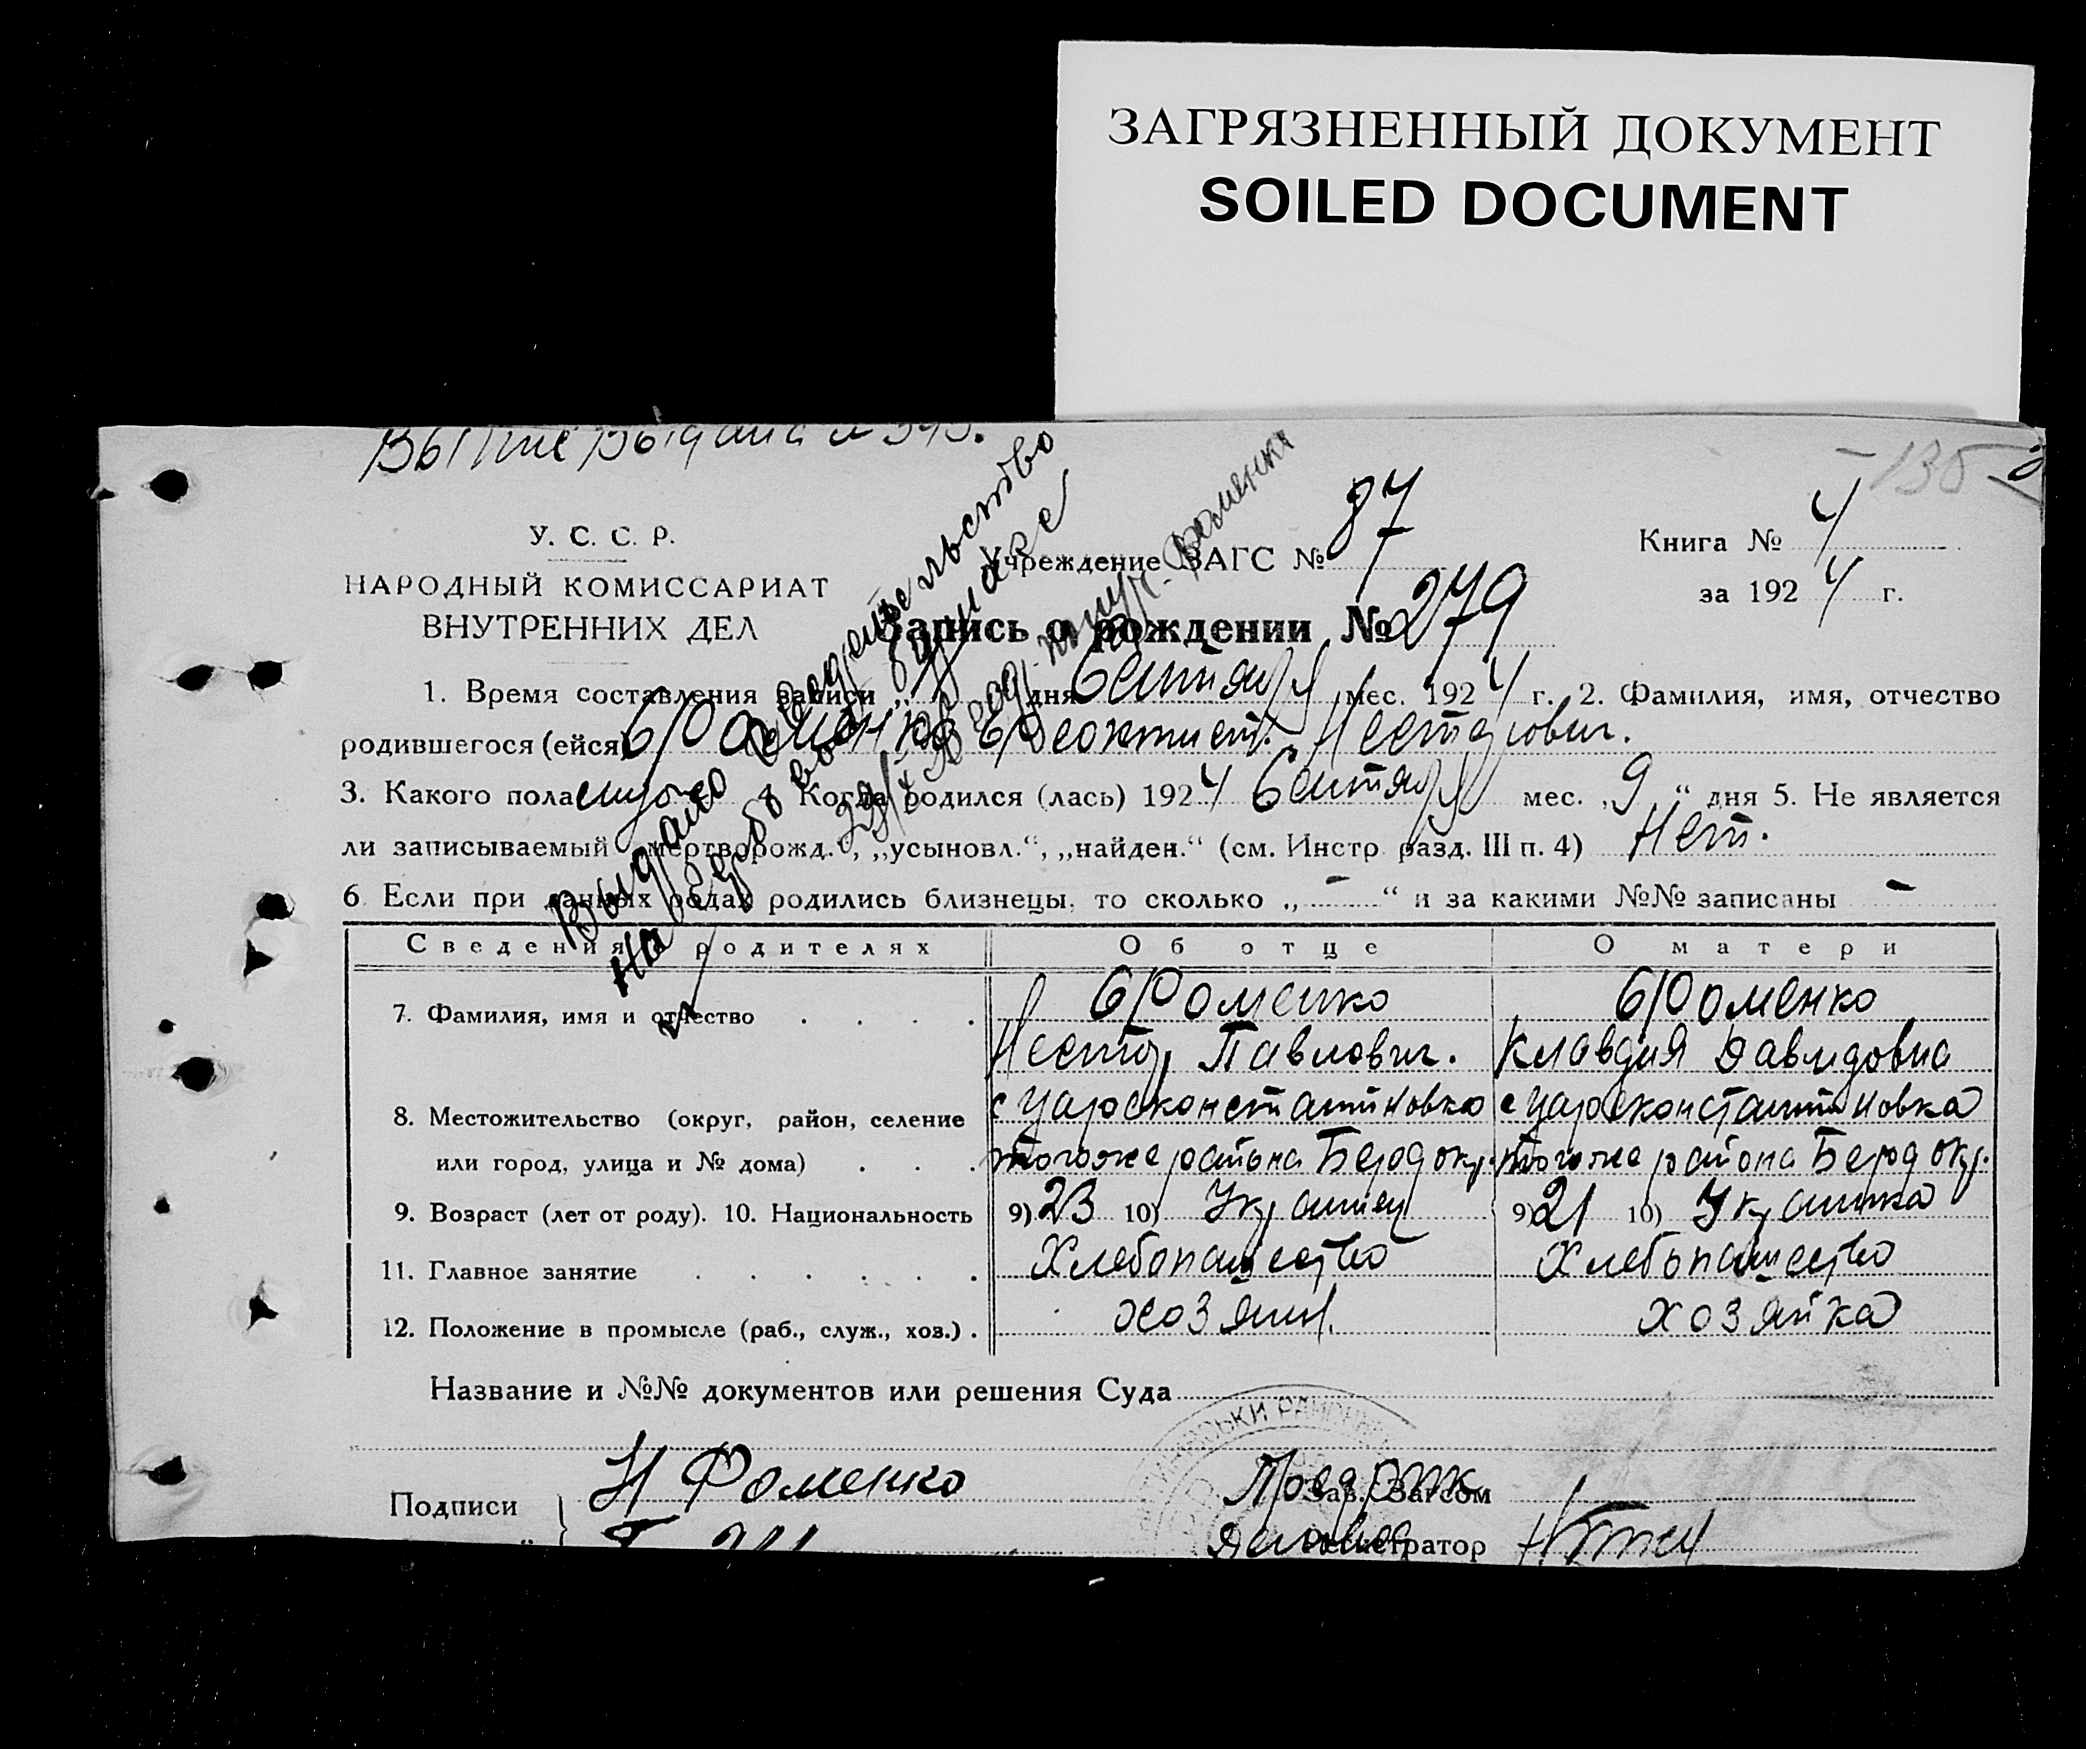 ЗАГРЯЗНЕННЫЙ ДОКУМЕНТ
SOILED DOCUMENT
У. С. С. Р.
НАРОДНЫЙ КОМИССАРИАТ
ВНУТРЕННИХ ДЕЛ
Учреждение ЗАГС № 87
Книга № 4
за 192 4 г.
Запись о рождении № 279
1. Время составления записи „ дня Сентября мес. 192 4 г. 2. Фамилия, имя, отчество
родившегося (ейся) Фоменко Феоктист Несторович.
3. Какого пола Когда родился (лась) 192 4 Сентября мес. „ 9 “ дня 5. Не является
ли записываемый „мертворожд.“, „усыновл.“, „найден.“ (см. Инстр. разд. III п. 4) Нет.
6. Если при данных родах родились близнецы, то сколько „ – “ и за какими №№ записаны –
Сведения о родителях Об отце О матери
7. Фамилия, имя и отчество Фоменко Фоменко
Нестор Павлович. Клавдия Давидовна
8. Местожительство (округ, район, селение с Царсконстантиновка с Царсконстантиновка
или город, улица и № дома) тогоже района Берд окр. тогоже района Берд окр.
9. Возраст (лет от роду). 10. Национальность 9) 23 10) Украинец 9) 21 10) Украинка
11. Главное занятие Хлебопашество Хлебопашество
12. Положение в промысле (раб., служ., хоз.) хозяин. хозяйка
Название и №№ документов или решения Суда
Подписи Н Фоменко Зав. Загсом
Регистратор
Выдано свидетельство